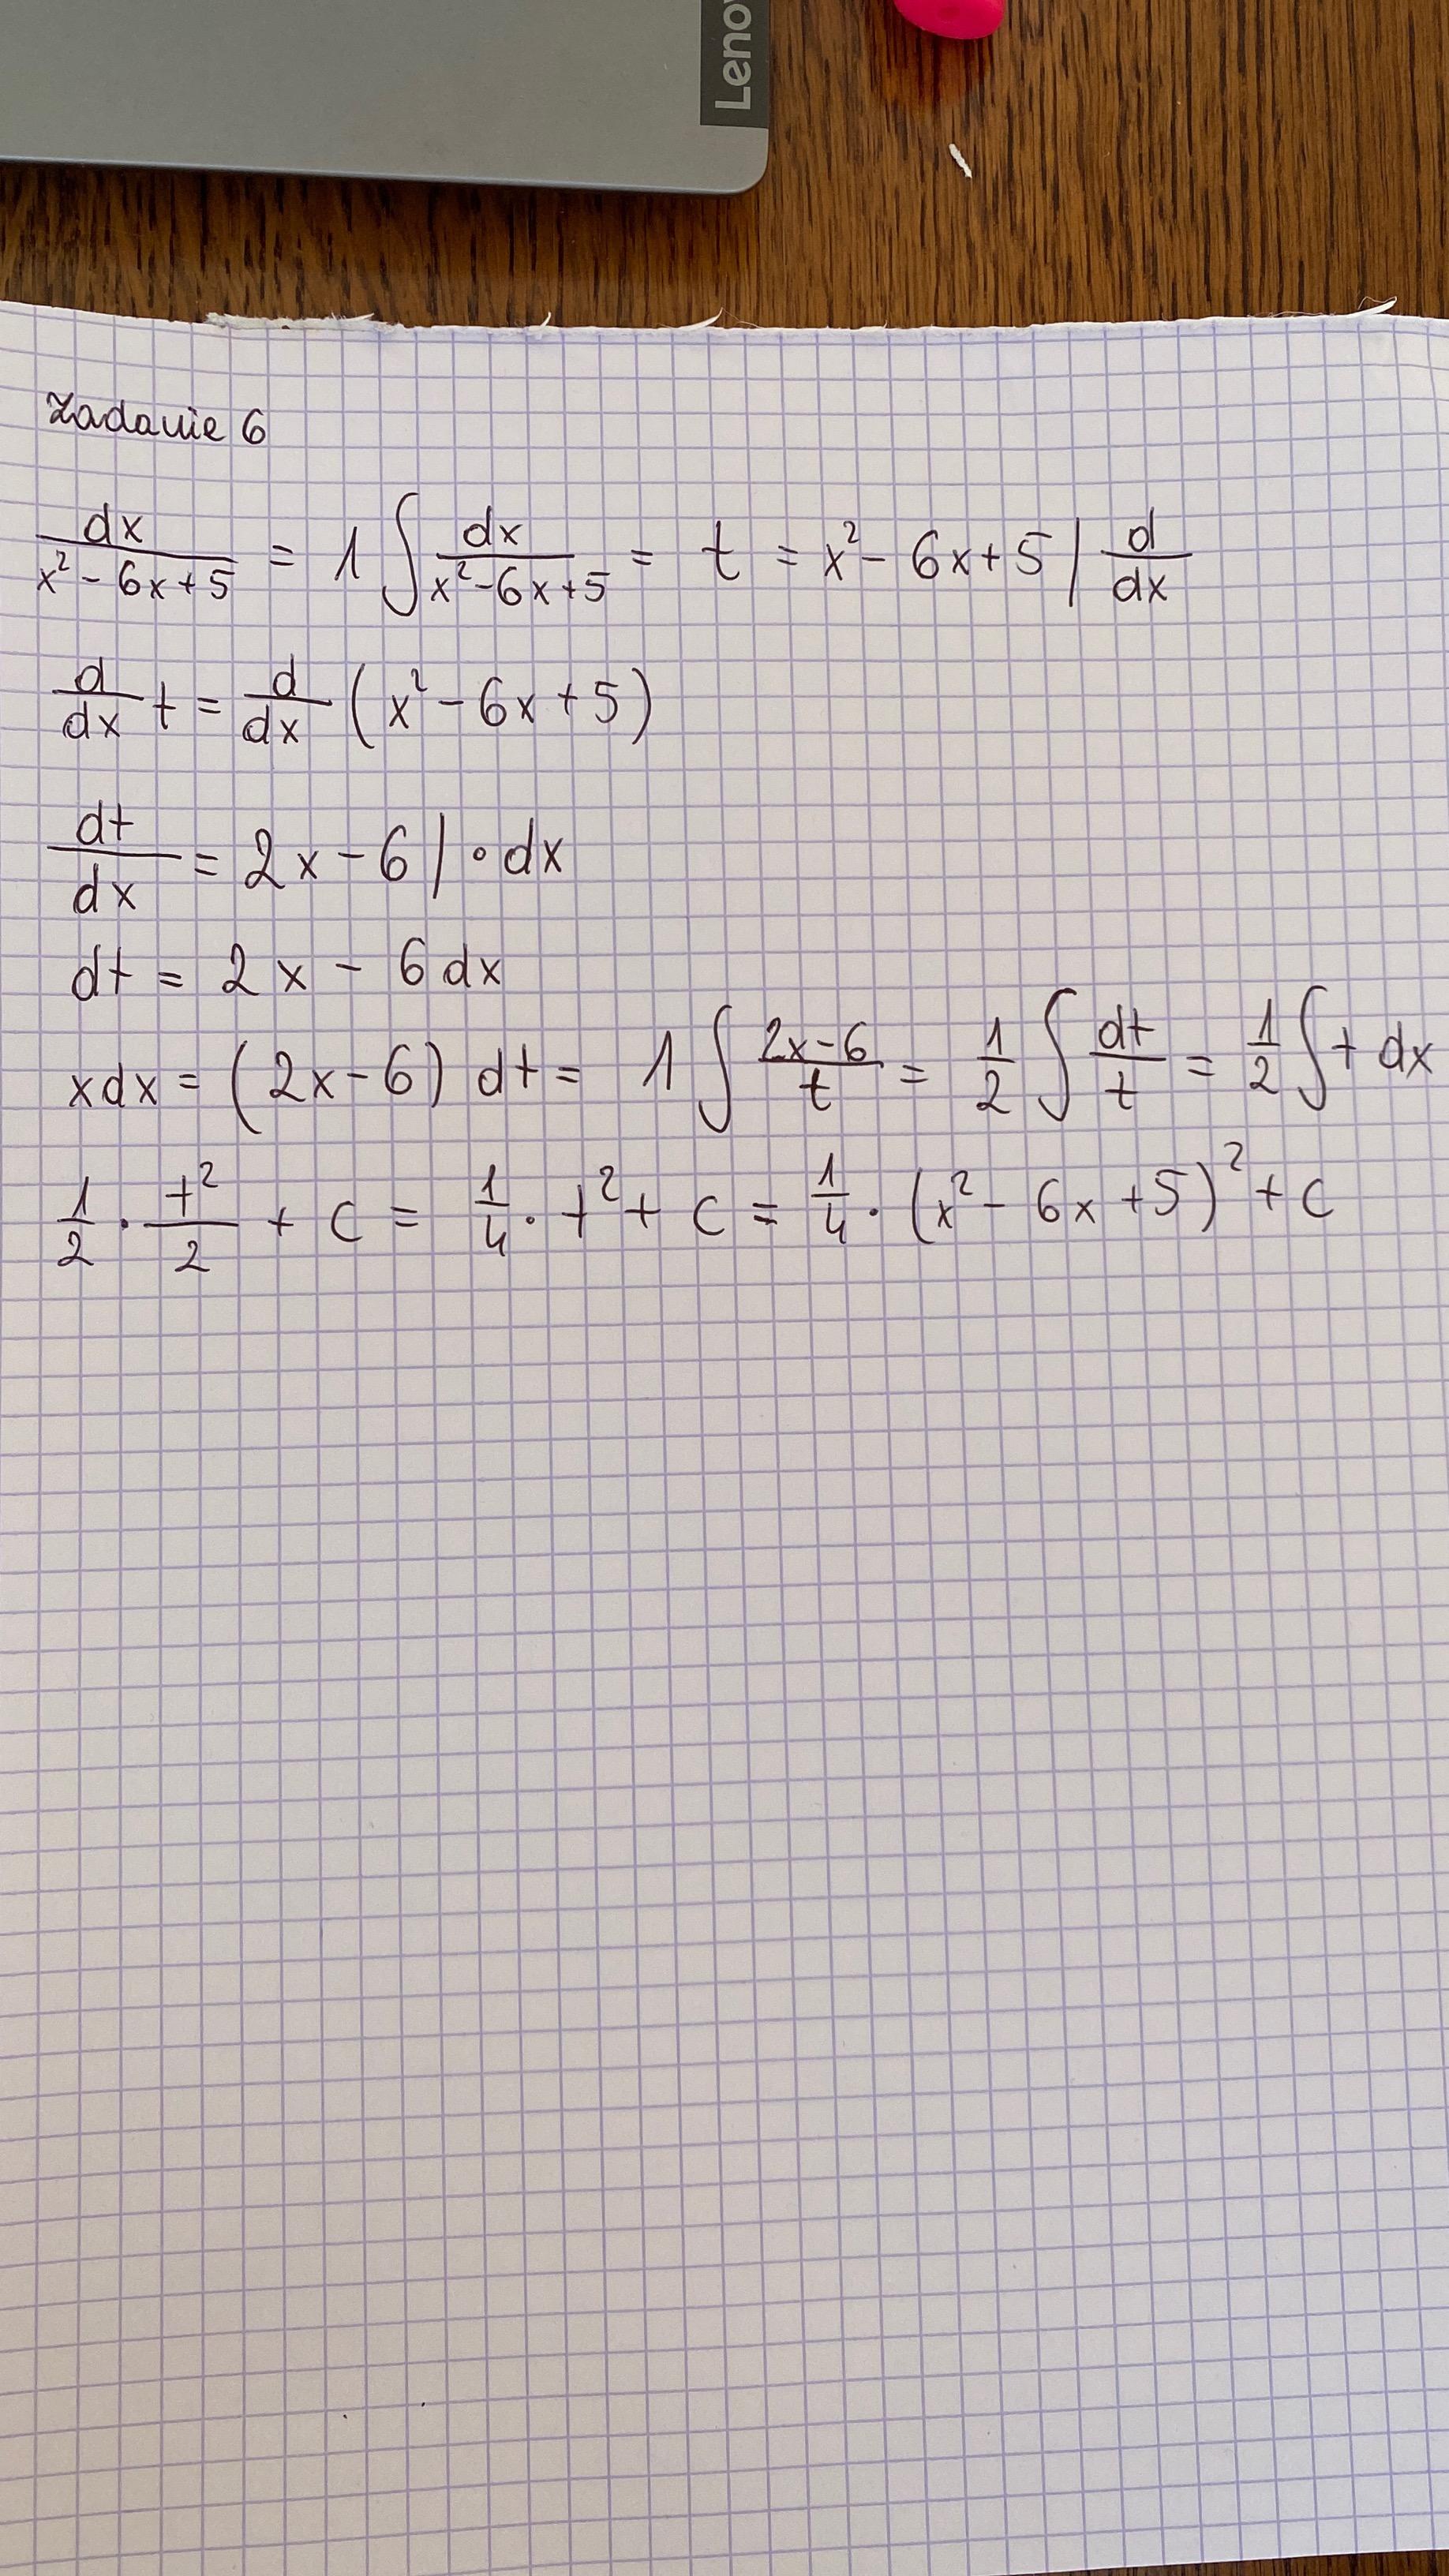 Leno
Zadanie 6
dx/(x²-6x+5) = 1 ∫ dx/(x²-6x+5) = t = x²-6x+5 | d/dx
d/dx t = d/dx (x²-6x+5)
dt/dx = 2x-6 | • dx
dt = 2x - 6dx
xdx = (2x-6) dt = 1 ∫ (2x-6)/t = 1/2 ∫ dt/t = 1/2 ∫ t dx
1/2 · t²/2 + C = 1/4 · t² + C = 1/4 · (x²-6x+5)² + C